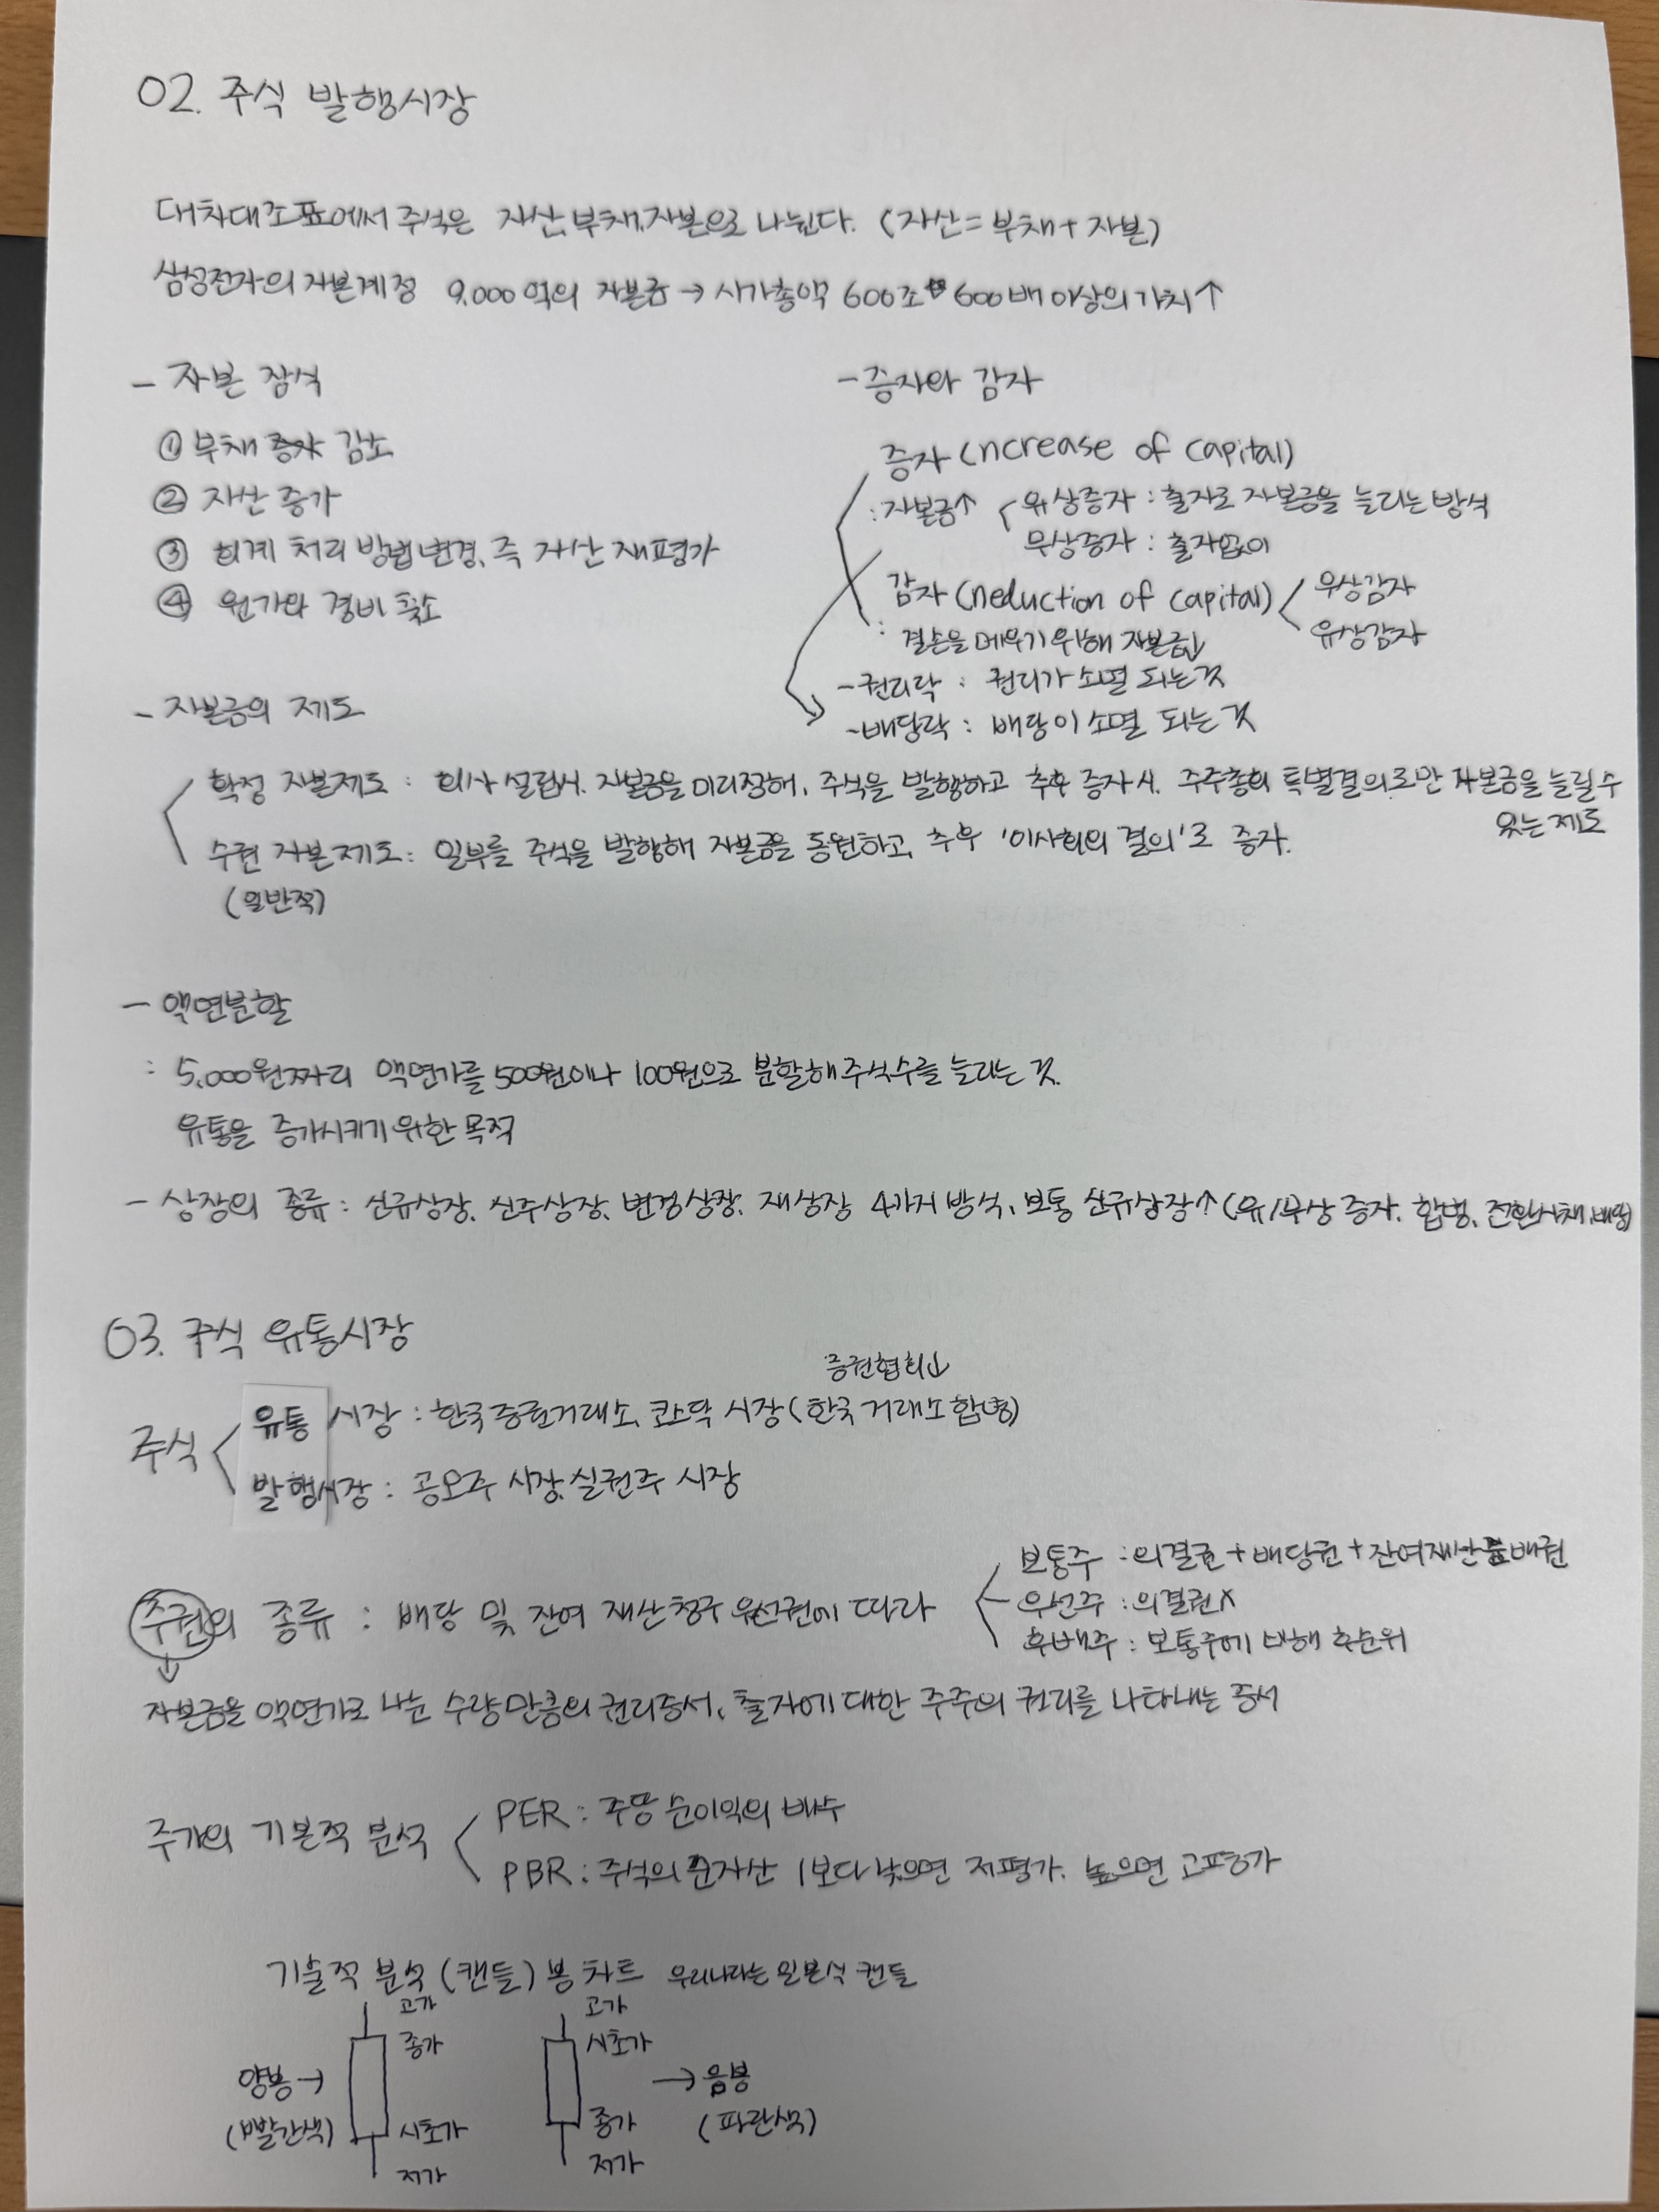 02. 주식 발행시장
대차대조표에서 주식은 자산, 부채, 자본으로 나뉜다. (자산=부채+자본)
삼성전자의 자본계정 9,000억의 자본금 → 시가총액 600조 600배 이상의 가치↑
- 자본 잠식
① 부채 감소
② 자산 증가
③ 회계 처리 방법변경, 즉 자산 재평가
④ 원가와 경비 축소
- 증자와 감자
증자 (ncrease of capital)
: 자본금↑
유상증자 : 출자로 자본금을 늘리는 방식
무상증자 : 출자없이
감자 (neduction of capital)
무상감자
유상감자
: 결손을 메우기 위해 자본금↓
- 권리락 : 권리가 소멸 되는 것
- 배당락 : 배당이 소멸 되는 것
- 자본금의 제도
확정 자본제도 : 회사 설립시. 자본금을 미리정해, 주식을 발행하고 추후 증자시. 주주총회 특별결의로만 자본금을 늘릴 수
있는 제도
수권 자본제도 : 일부를 주식을 발행해 자본금을 동원하고, 추후 '이사회의 결의'로 증자.
(일반적)
- 액면분할
: 5,000원짜리 액면가를 500원이나 100원으로 분할해 주식수를 늘리는 것.
유통을 증가시키기 위한 목적
- 상장의 종류 : 신규상장, 신주상장, 변경상장, 재상장 4가지 방식, 보통 신규상장↑ (유/무상 증자, 합병, 전환사채, 배당)
03. 주식 유통시장
증권협회↓
주식
유통 시장 : 한국증권거래소, 코스닥 시장 (한국 거래소 합병)
발행시장 : 공모주 시장, 실권주 시장
주권의 종류 : 배당 및 잔여 재산청구 우선권에 따라
보통주 : 의결권 + 배당권 + 잔여재산분배권
우선주 : 의결권X
후배주 : 보통주에 비해 후순위
↓
자본금을 액면가로 나눈 수량만큼의 권리증서, 출자에 대한 주주의 권리를 나타내는 증서
주가의 기본적 분석
PER : 주당 순이익의 배수
PBR : 주식의 순자산 1보다 낮으면 저평가. 높으면 고평가
기술적 분석 (캔들) 봉 차트 우리나라는 일본식 캔들
고가
종가
양봉→
(빨간색)
시초가
저가
고가
시초가
→음봉
(파란색)
종가
저가